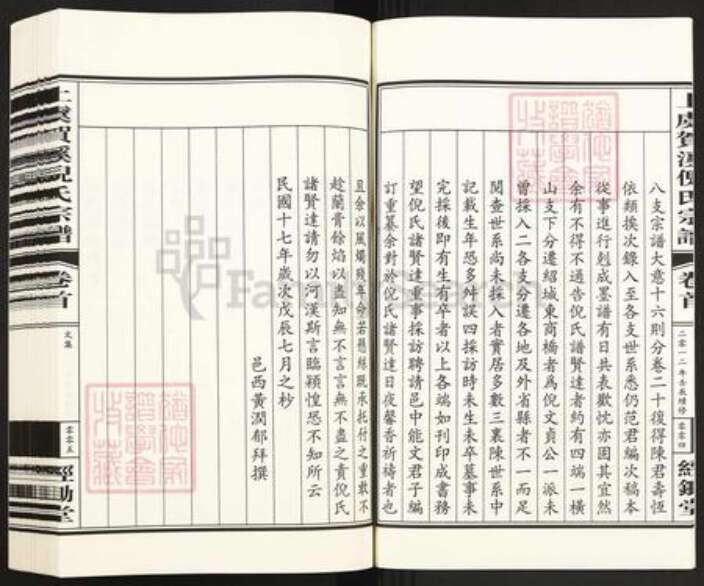 上虞賀溪倪氏宗譜
卷首
二零一二年壬辰續修
零零四
經鋤堂
八支宗譜大意十六則分卷二十復得陳君壽恆
依類挨次錄入至各支世系悉仍范君編次稿本
從事進行剋成墨譜有日共表歡忱亦固其宜然
余有不得不通告倪氏諸賢達者約有四端一橫
山支下分遷紹城東商橋者為倪文貞公一派未
曾採入二各支分遷各地及外省縣者不一而足
閱查世系尚未採入者實居多數三裏陳世系中
記載生年恐多舛誤四採訪時未生未卒墓事未
完採後即有生有卒者以上各端如刊印成書務
望倪氏諸賢達重事採訪聘請邑中能文君子編
訂重纂余對於倪氏諸賢達日夜馨香祈禱者也
且余以風燭殘年命若懸絲既承托付之重敢不
趁蘭膏餘焰以盡知無不言言無不盡之責倪氏
諸賢達請勿以河漢斯言臨穎惶恐不知所云
民國十七年歲次戊辰七月之杪
邑西黃潤郁拜撰
上虞賀溪倪氏宗譜
卷首
文集
零零五
經鋤堂
FamilySearch